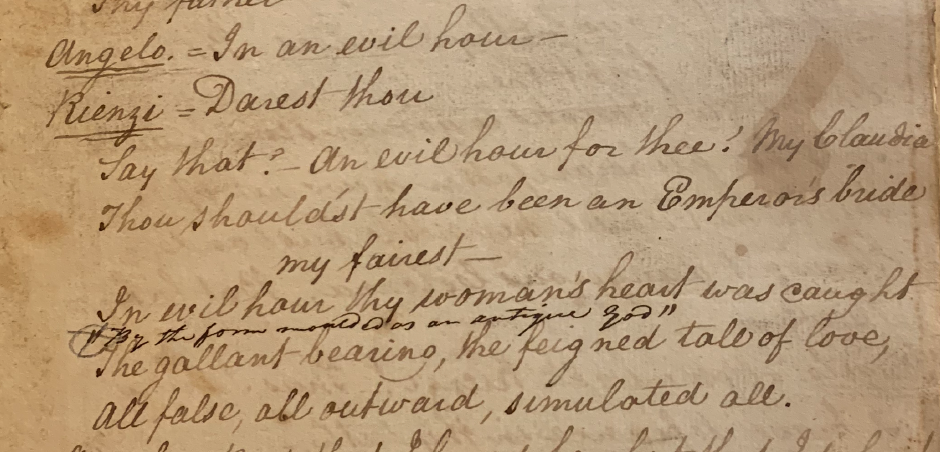 Thy father
Angelo. = In an evil hour —
Rienzi = Darest thou
Say that? — An evil hour for thee! My Claudia
Thou should'st have been an Emperor's bride
my fairest —
In evil hour thy woman's heart was caught
"By the form moulded as an antique God"
The gallant bearing, the feigned tale of love,
All false, all outward, simulated all.